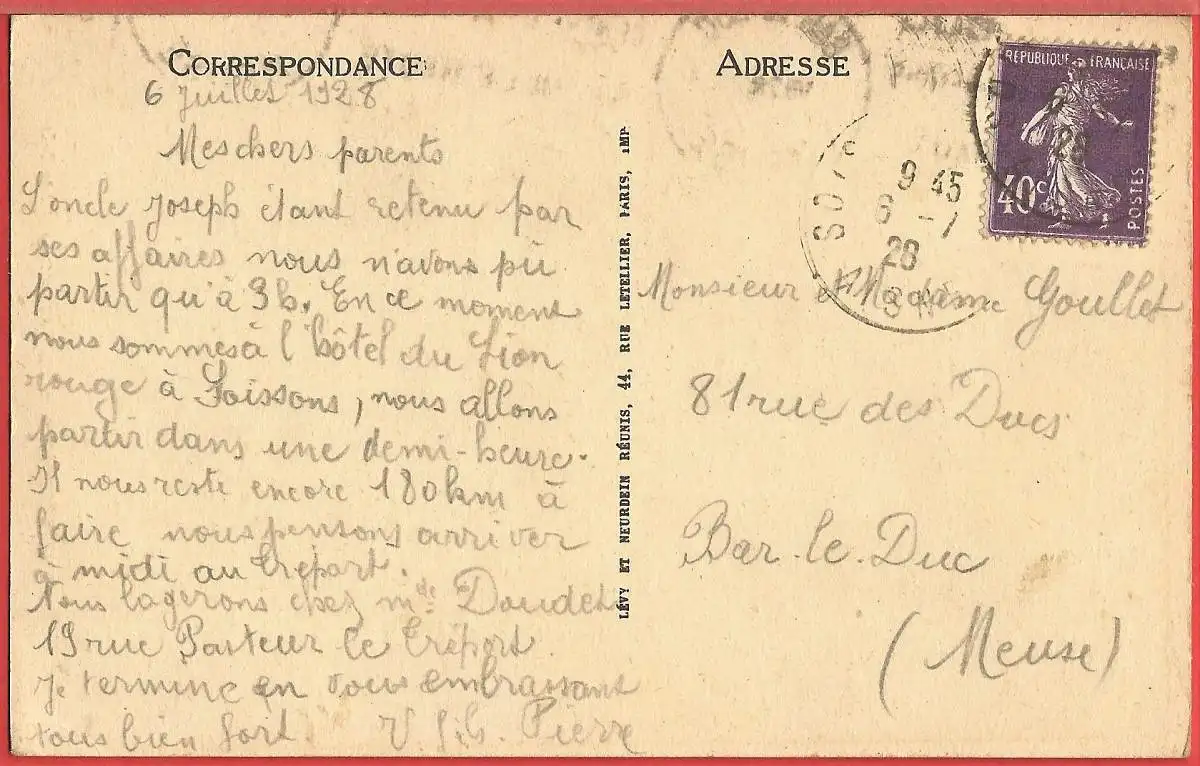 CORRESPONDANCE
6 Juillet 1928
Mes chers parents
L'oncle Joseph étant retenu par
ses affaires nous n'avons pu
partir qu'à 3h. En ce moment
nous sommes à l'hôtel du Lion
rouge à Soissons, nous allons
partir dans une demi-heure.
Il nous reste encore 180 km à
faire nous pensons arriver
à midi au Tréport.
Nous logerons chez Mde Doudet
19 rue Pasteur Le Tréport.
Je termine en vous embrassant
tous bien fort. V. fils. Pierre
LÉVY ET NEURDEIN RÉUNIS, 44, RUE LETELLIER, PARIS, IMP.
ADRESSE
REPUBLIQUE FRANÇAISE
40c
POSTES
9 45
6 - 7
28
Monsieur et Madame Goullet
81 rue des Ducs
Bar-le-Duc
(Meuse)